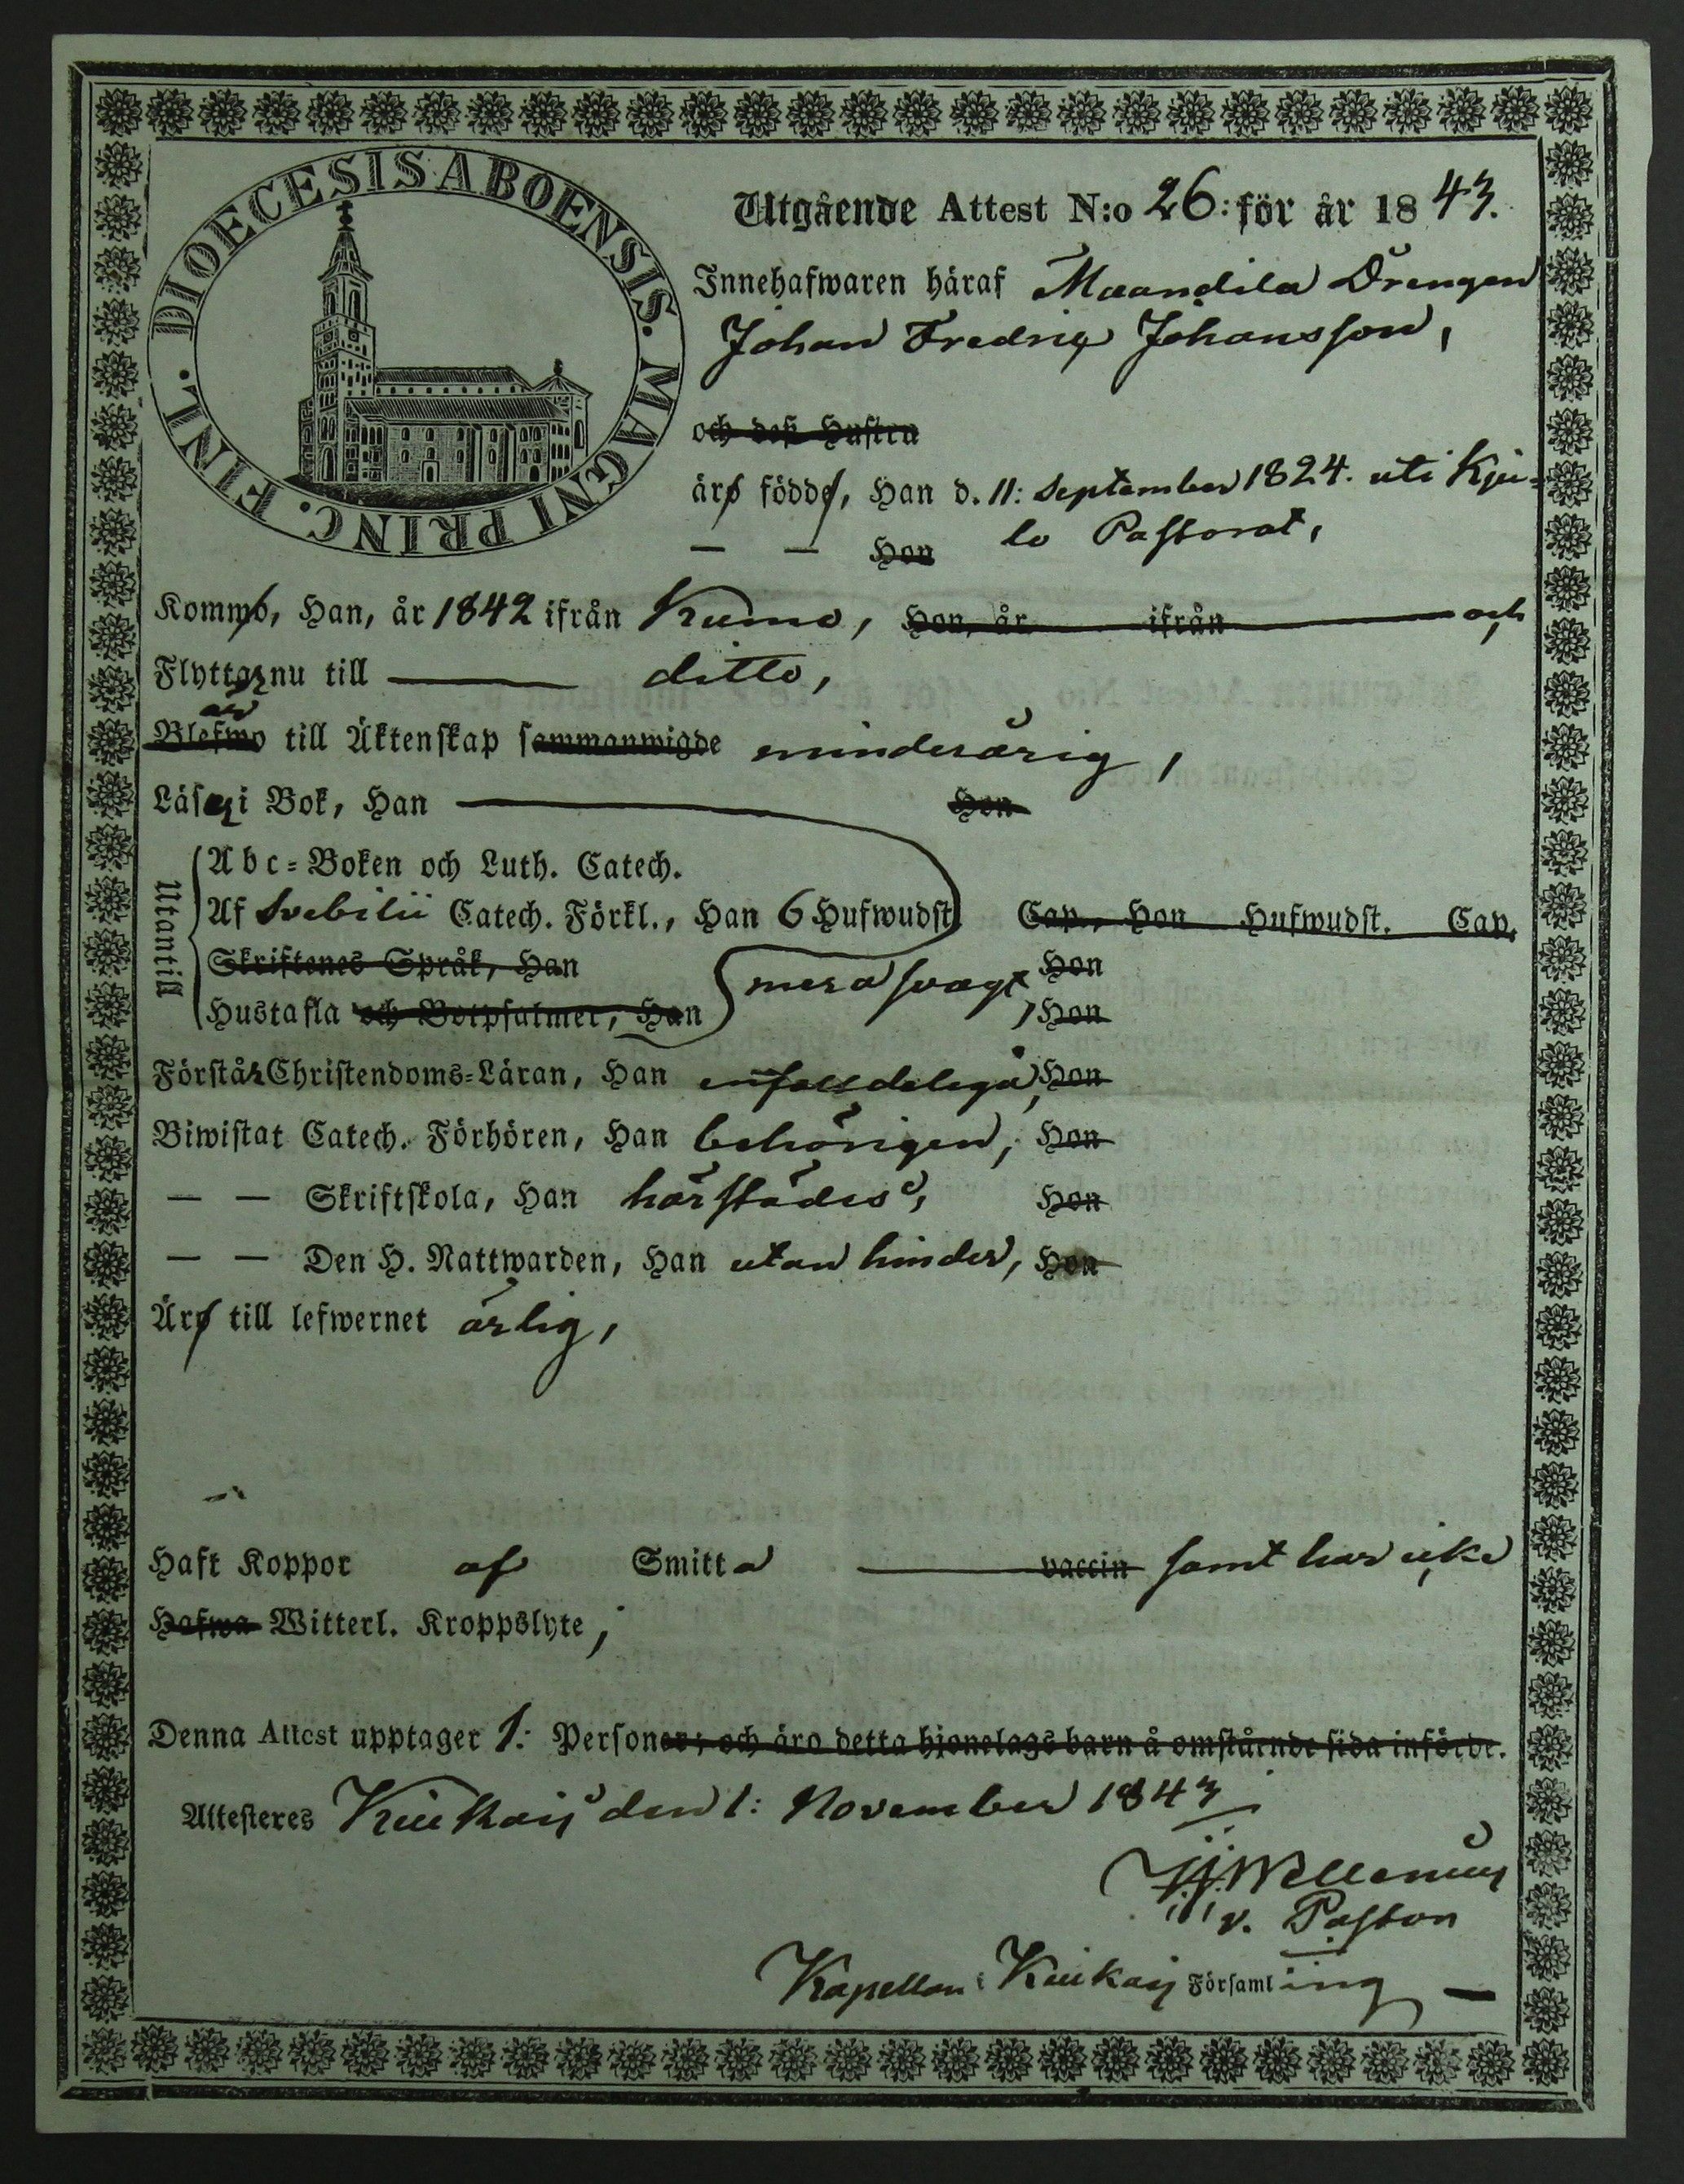 DIOECESIS ABOENSIS. MAGNI PRINC. FINL.
Utgående Attest N:o 26: för år 1843.
Innehafwaren häraf Maandila Drengen
Johan Fredric Johansson,
och deß Hustru
äro födde, Han d. 11: September 1824. uti Kju-
lo Pastorat,
— — Hon
Kommo, Han, år 1842 ifrån Kumo, Hon, år ifrån och
Flyttar nu till ditto,
är
Blefwo till Äktenskap sammanwigde minderårig,
Läser i Bok, Han Hon
Utantill
Abc-Boken och Luth. Catech.
Af Svebilii Catech. Förkl., Han 6 Hufwudst. Cap., Hon Hufwudst. Cap.
Skriftenes Språk, Han Hon
mera svagt,
Hustafla och Botpsalmer, Han Hon
Förstår Christendoms-Läran, Han enfaldeliga, Hon
Biwistat Catech. Förhören, Han behörigen, Hon
— — Skriftskola, Han härstädes, Hon
— — Den H. Nattwarden, Han utan hinder, Hon
Äro till lefwernet ärlig,
Haft Koppor af Smitta vaccin samt har icke
Hafwa Witterl. Kroppslyte;
Denna Attest upptager 1: Personer; och äro detta hjonelags barn å omstående sida införde.
Attesteres Kiukais den 1: November 1843
Wellenius
v. Pastor
Kapellan i Kiukais Församling —